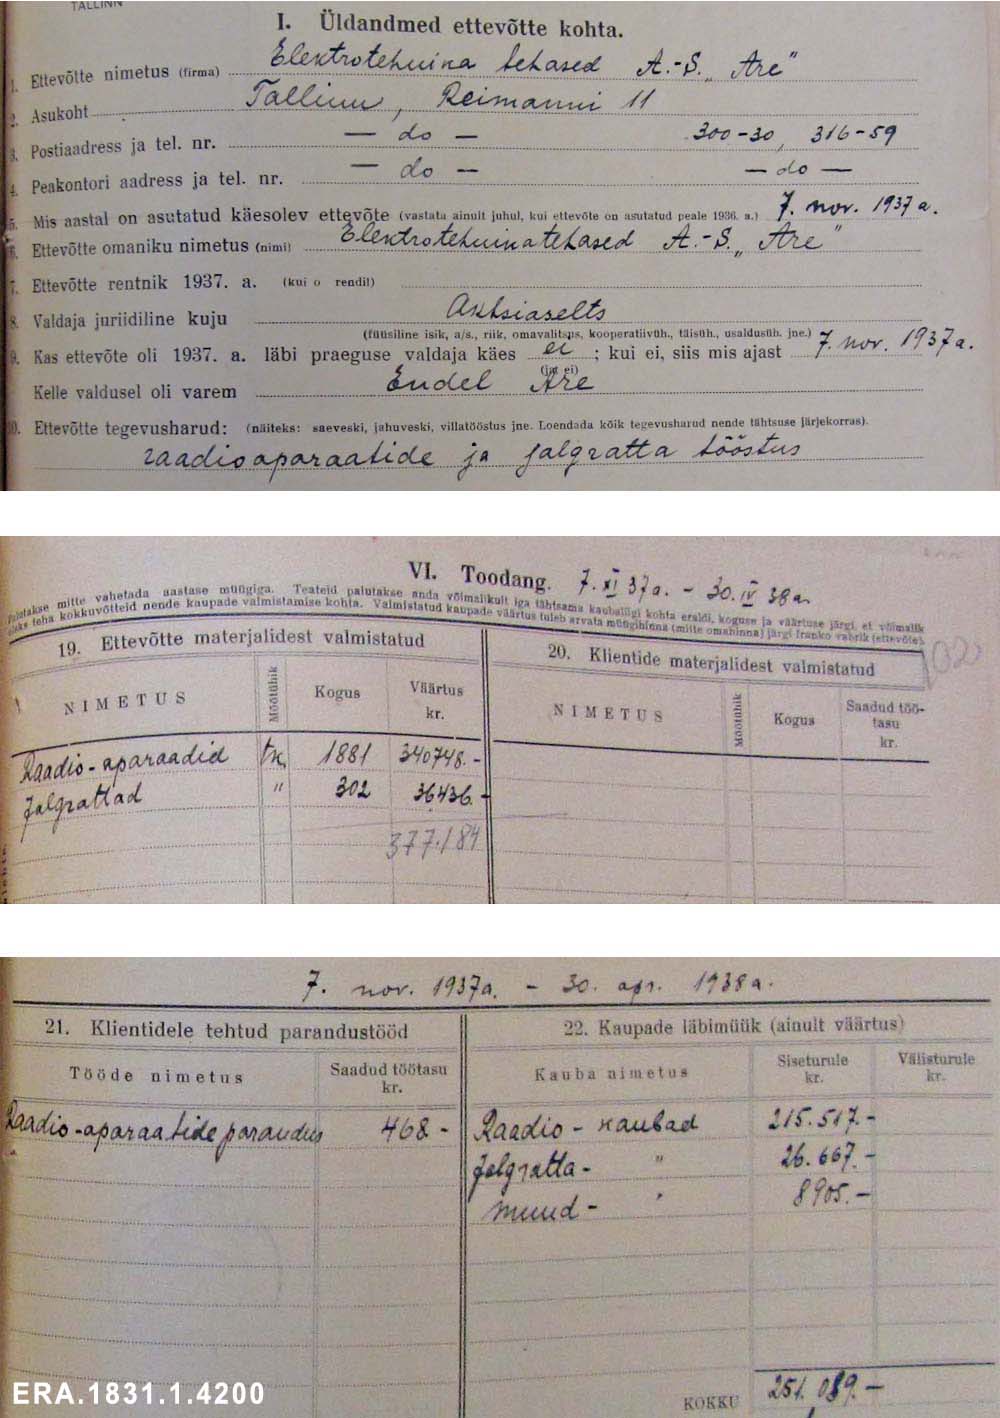 TALLINN
I. Üldandmed ettevõtte kohta.
1. Ettevõtte nimetus (firma) Elektrotehnika tehased A.-S. „Are"
2. Asukoht Tallinn, Reimanni 11
3. Postiaadress ja tel. nr. — do — 300-30, 316-59
4. Peakontori aadress ja tel. nr. — do — — do —
5. Mis aastal on asutatud käesolev ettevõte (vastata ainult juhul, kui ettevõte on asutatud peale 1936. a.) 7. nov. 1937 a.
6. Ettevõtte omaniku nimetus (nimi) Elektrotehnikatehased A.-S. „Are"
7. Ettevõtte rentnik 1937. a. (kui o rendil)
8. Valdaja juriidiline kuju Aktsiaselts
(füüsiline isik, a/s., riik, omavalitsus, kooperatiivüh., täisüh., usaldusüh. jne.)
9. Kas ettevõte oli 1937. a. läbi praeguse valdaja käes ei ; kui ei, siis mis ajast 7. nov. 1937 a.
(jah ei)
Kelle valdusel oli varem Endel Are
10. Ettevõtte tegevusharud: (näiteks: saeveski, jahuveski, villatööstus jne. Loendada kõik tegevusharud nende tähtsuse järjekorras).
raadioaparaatide ja jalgratta tööstus
VI. Toodang. 7. XI 37a. - 30. IV 38a.
Palutakse mitte vahetada aastase müügiga. Teateid palutakse anda võimalikult iga tähtsama kaubaliigi kohta eraldi, koguse ja väärtuse järgi, et võimalik
oleks teha kokkuvõtteid nende kaupade valmistamise kohta. Valmistatud kaupade väärtus tuleb arvata müügihinna (mitte omahinna) järgi franko vabrik (ettevõte).
19. Ettevõtte materjalidest valmistatud
20. Klientide materjalidest valmistatud
NIMETUS Mõõtühik Kogus Väärtus kr.
NIMETUS Mõõtühik Kogus Saadud töö-tasu kr.
Raadio-aparaadid tk. 1881 340748.-
Jalgrattad " 302 36436.-
377.184
7. nov. 1937a. - 30. apr. 1938a.
21. Klientidele tehtud parandustööd
22. Kaupade läbimüük (ainult väärtus)
Tööde nimetus Saadud töötasu kr.
Kauba nimetus Siseturule kr. Välisturule kr.
Raadio-aparaatide parandus 468 -
Raadio - kaubad 215.517.-
Jalgratta- " 26.667.-
muud- " 8905.-
KOKKU 251.089.-
ERA.1831.1.4200